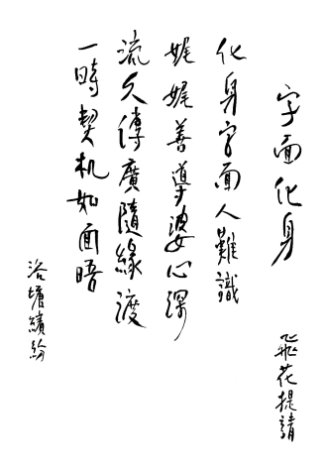 字面化身
飛花提請
化身字面人難識
娓娓善導婆心
流久傳廣隨緣渡
一時契机如面晤
繽紛